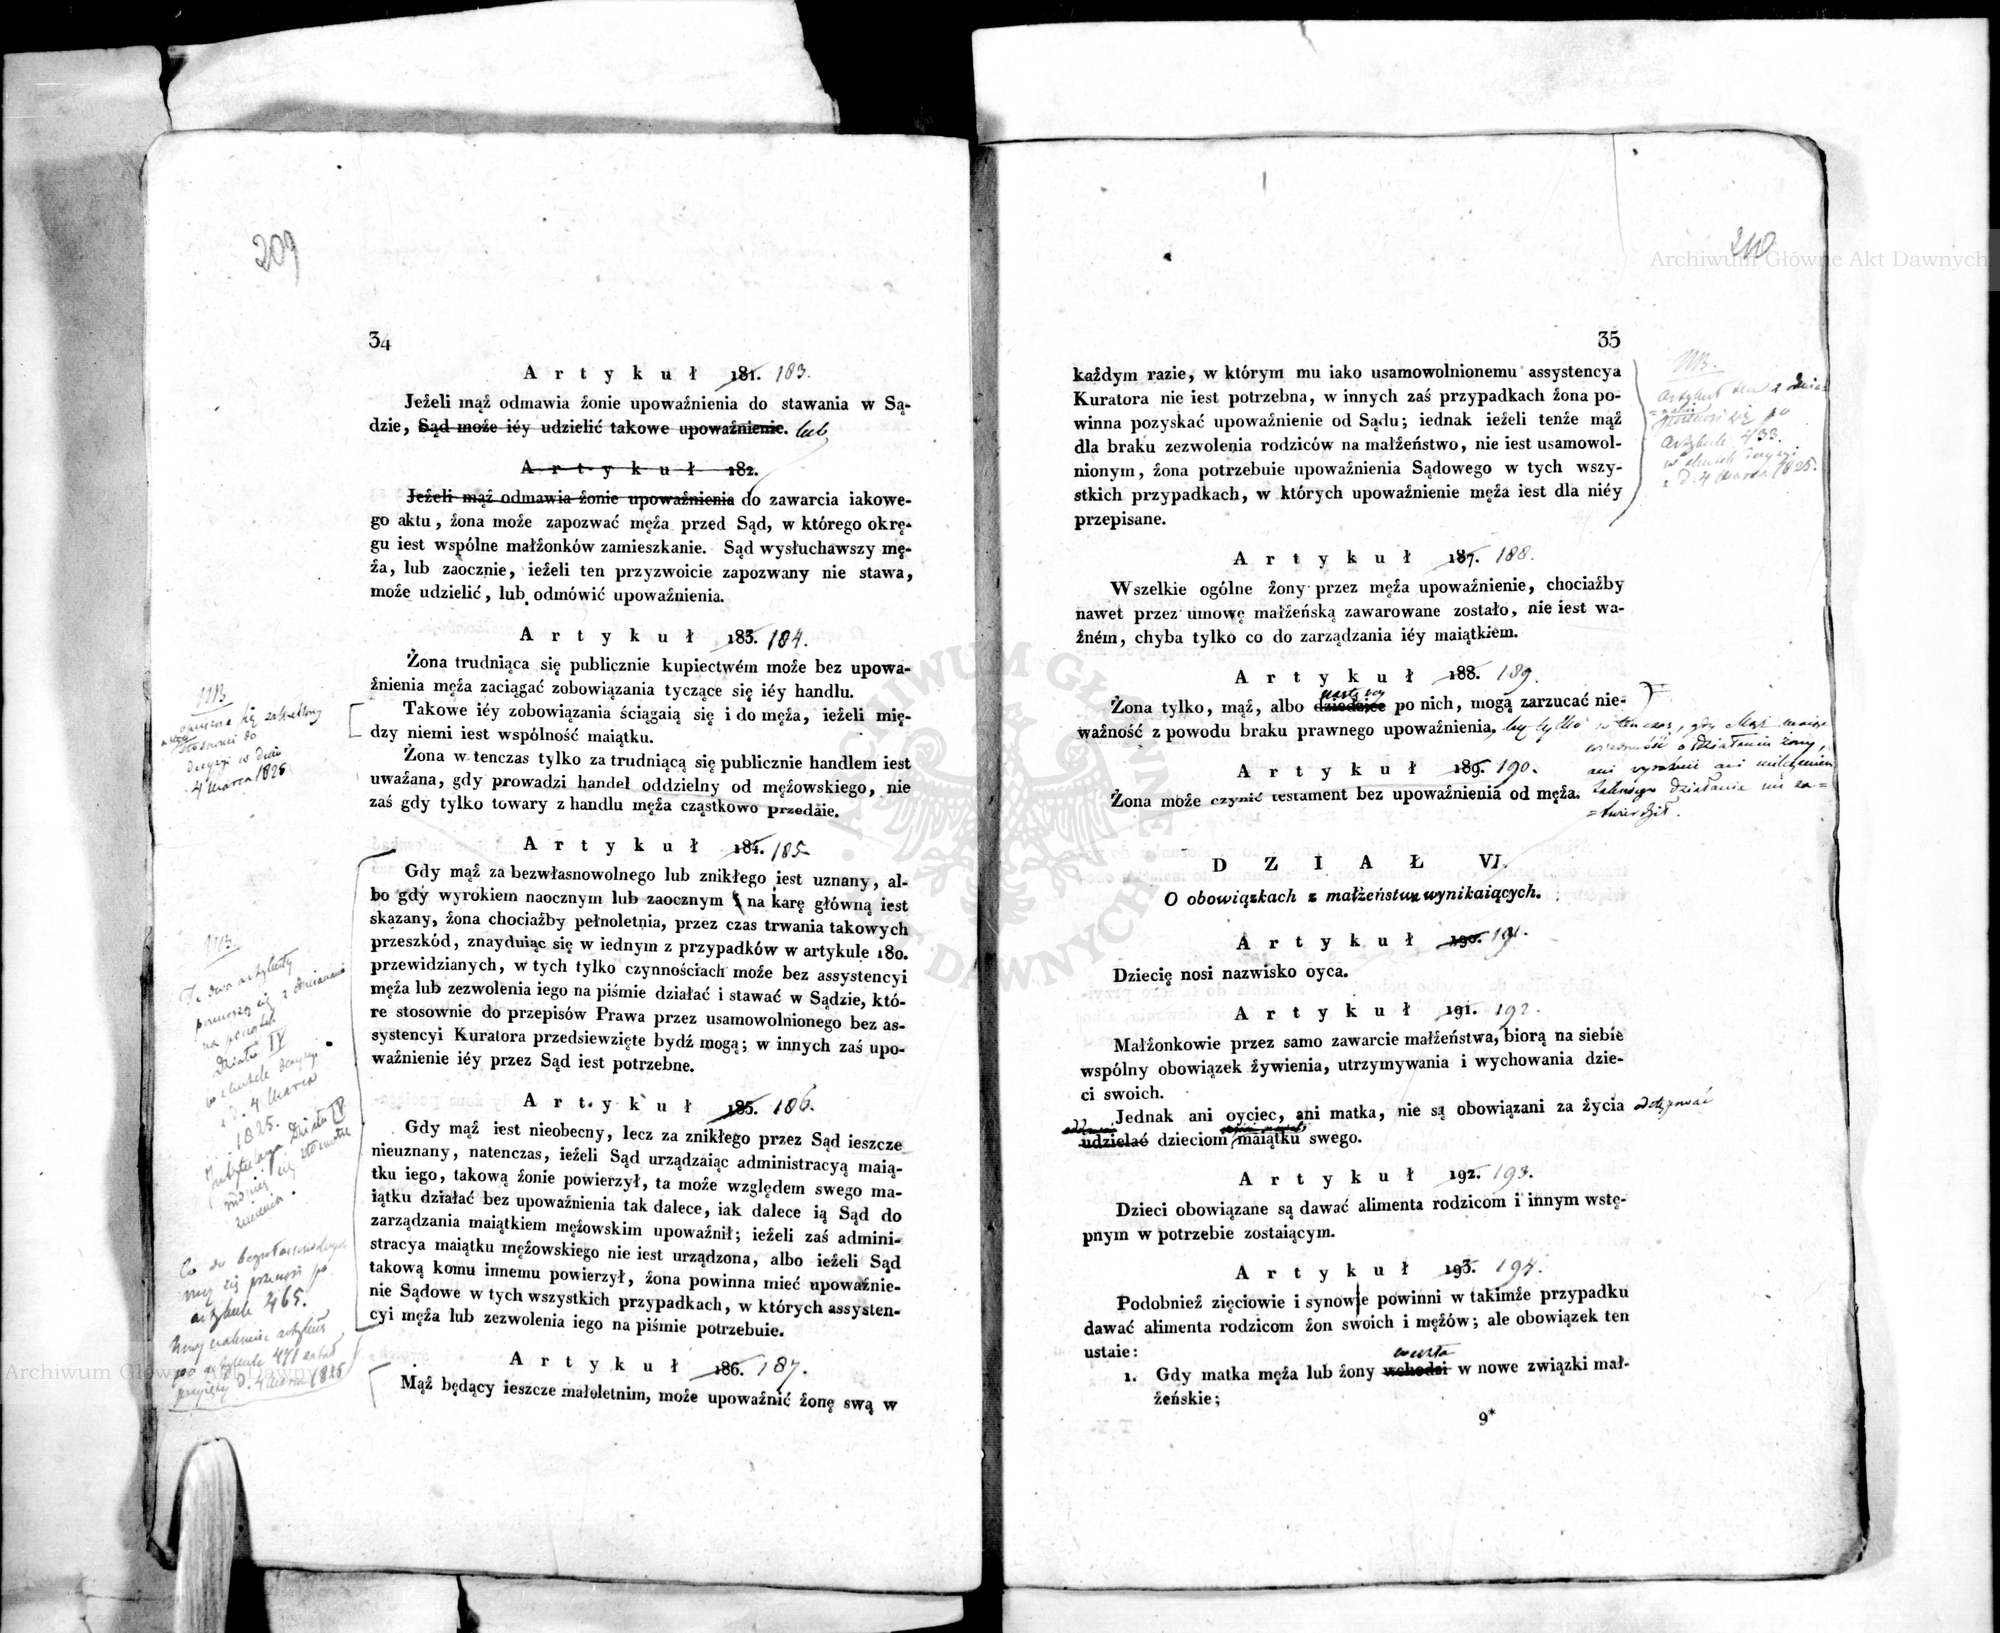 209
34
Artykuł 181. 183.
Jeżeli mąż odmawia żonie upoważnienia do stawania w Są-
dzie, Sąd może iéy udzielić takowe upoważnienie. lub
Artykuł 182.
Jeżeli mąż odmawia żonie upoważnienia do zawarcia iakowe-
go aktu, żona może zapozwać męża przed Sąd, w którego okrę-
gu iest wspólne małżonków zamieszkanie. Sąd wysłuchawszy mę-
ża, lub zaocznie, ieżeli ten przyzwoicie zapozwany nie stawa,
może udzielić, lub odmówić upoważnienia.
Artykuł 183. 184.
Żona trudniąca się publicznie kupiectwém może bez upowa-
żnienia męża zaciągać zobowiązania tyczące się iéy handlu.
Takowe iéy zobowiązania ściągaią się i do męża, ieżeli mię-
dzy niemi iest wspólność maiątku.
Żona w tenczas tylko za trudniącą się publicznie handlem iest
uważana, gdy prowadzi handel oddzielny od mężowskiego, nie
zaś gdy tylko towary z handlu męża cząstkowo przedaie.
NB
stosownie do
decyzji w dniu
4 Marca 1825
Artykuł 184. 185
Gdy mąż za bezwłasnowolnego lub znikłego iest uznany, al-
bo gdy wyrokiem naocznym lub zaocznym na karę główną iest
skazany, żona chociażby pełnoletnia, przez czas trwania takowych
przeszkód, znayduiąc się w iednym z przypadków w artykule 180.
przewidzianych, w tych tylko czynnościach może bez assystencyi
męża lub zezwolenia iego na piśmie działać i stawać w Sądzie, któ-
re stosownie do przepisów Prawa przez usamowolnionego bez as-
systencyi Kuratora przedsiewzięte bydź mogą; w innych zaś upo-
ważnienie iéy przez Sąd iest potrzebne.
NB
Te dwa artykuły
przenoszą się z odmianami
na początek
Działu IV
w skutek decyzji
z d. 4 Marca
1825.
Artykuł 185. 186.
Gdy mąż iest nieobecny, lecz za znikłego przez Sąd ieszcze
nieuznany, natenczas, ieżeli Sąd urządzaiąc administracyą maią-
tku iego, takową żonie powierzył, ta może względem swego ma-
iątku działać bez upoważnienia tak dalece, iak dalece ią Sąd do
zarządzania maiątkiem mężowskim upoważnił; ieżeli zaś admini-
stracya maiątku mężowskiego nie iest urządzona, albo ieżeli Sąd
takową komu innemu powierzył, żona powinna mieć upoważnie-
nie Sądowe w tych wszystkich przypadkach, w których assysten-
cyi męża lub zezwolenia iego na piśmie potrzebuie.
Co do
artykule 465.
artykule 471
d. 4 Marca 1825
Artykuł 186. 187.
Mąż będący ieszcze małoletnim, może upoważnić żonę swą w
210
35
każdym razie, w którym mu iako usamowolnionemu assystencya
Kuratora nie iest potrzebna, w innych zaś przypadkach żona po-
winna pozyskać upoważnienie od Sądu; iednak ieżeli tenże mąż
dla braku zezwolenia rodziców na małżeństwo, nie iest usamowol-
nionym, żona potrzebuie upoważnienia Sądowego w tych wszy-
stkich przypadkach, w których upoważnienie męża iest dla niéy
przepisane.
NB.
Artykuł ten z odmia-
nami przenosi się po
Artykule 433.
w skutek decyzji
z d. 4 Marca 1825.
Artykuł 187. 188.
Wszelkie ogólne żony przez męża upoważnienie, chociażby
nawet przez umowę małżeńską zawarowane zostało, nie iest wa-
żném, chyba tylko co do zarządzania iéy maiątkiem.
Artykuł 188. 189.
Żona tylko, mąż, albo dziedzice po nich, mogą zarzucać nie-
ważność z powodu braku prawnego upoważnienia, lecz tylko wtenczas, gdy Mąż maiąc
wiadomość o działaniu żony,
ani wyraźnie ani milczeniem
takowego działania nie za-
twierdził.
Artykuł 189. 190.
Żona może czynić testament bez upoważnienia od męża.
DZIAŁ VI.
O obowiązkach z małżeństwa wynikaiących.
Artykuł 190. 191.
Dziecię nosi nazwisko oyca.
Artykuł 191. 192.
Małżonkowie przez samo zawarcie małżeństwa, biorą na siebie
wspólny obowiązek żywienia, utrzymywania i wychowania dzie-
ci swoich.
Jednak ani oyciec, ani matka, nie są obowiązani za życia odstępować
udzielać dzieciom maiątku swego.
Artykuł 192. 193.
Dzieci obowiązane są dawać alimenta rodzicom i innym wstę-
pnym w potrzebie zostaiącym.
Artykuł 193. 194.
Podobnież zięciowie i synowie powinni w takimże przypadku
dawać alimenta rodzicom żon swoich i mężów; ale obowiązek ten
ustaie:
1. Gdy matka męża lub żony wchodzi weszła w nowe związki mał-
żeńskie;
9*
Archiwum Główne Akt Dawnych
Archiwum Główne Akt Dawnych
ARCHIWUM GŁÓWNE AKT DAWNYCH